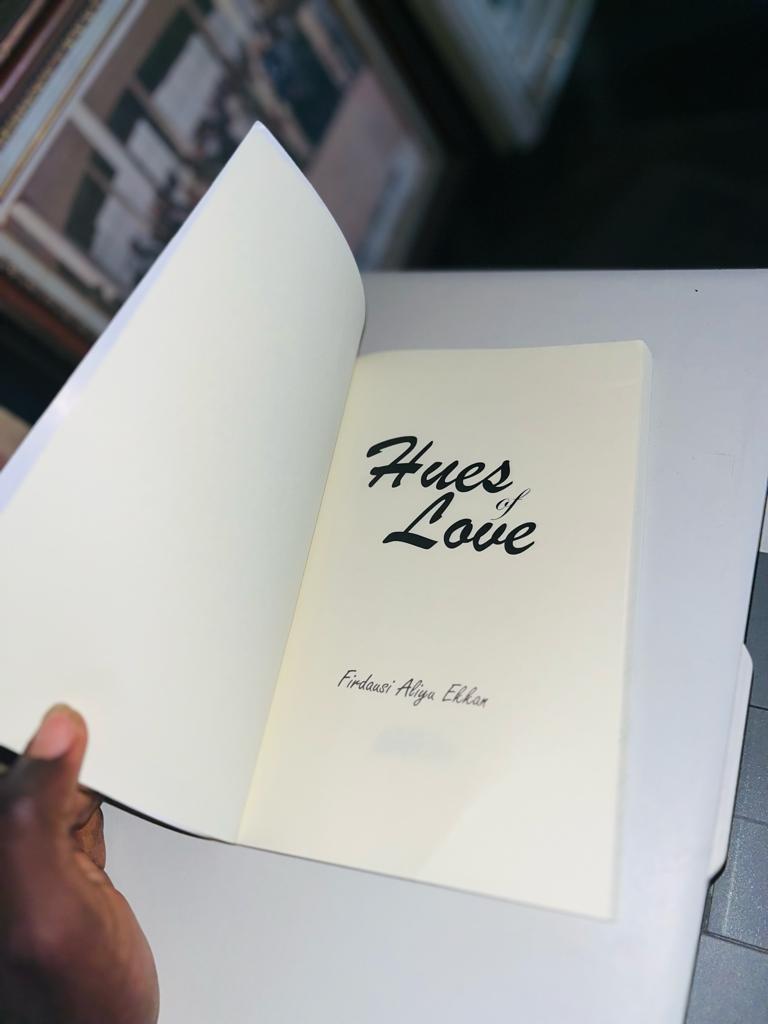 Hues
of
Love
Firdausi Aliyu Ekkan